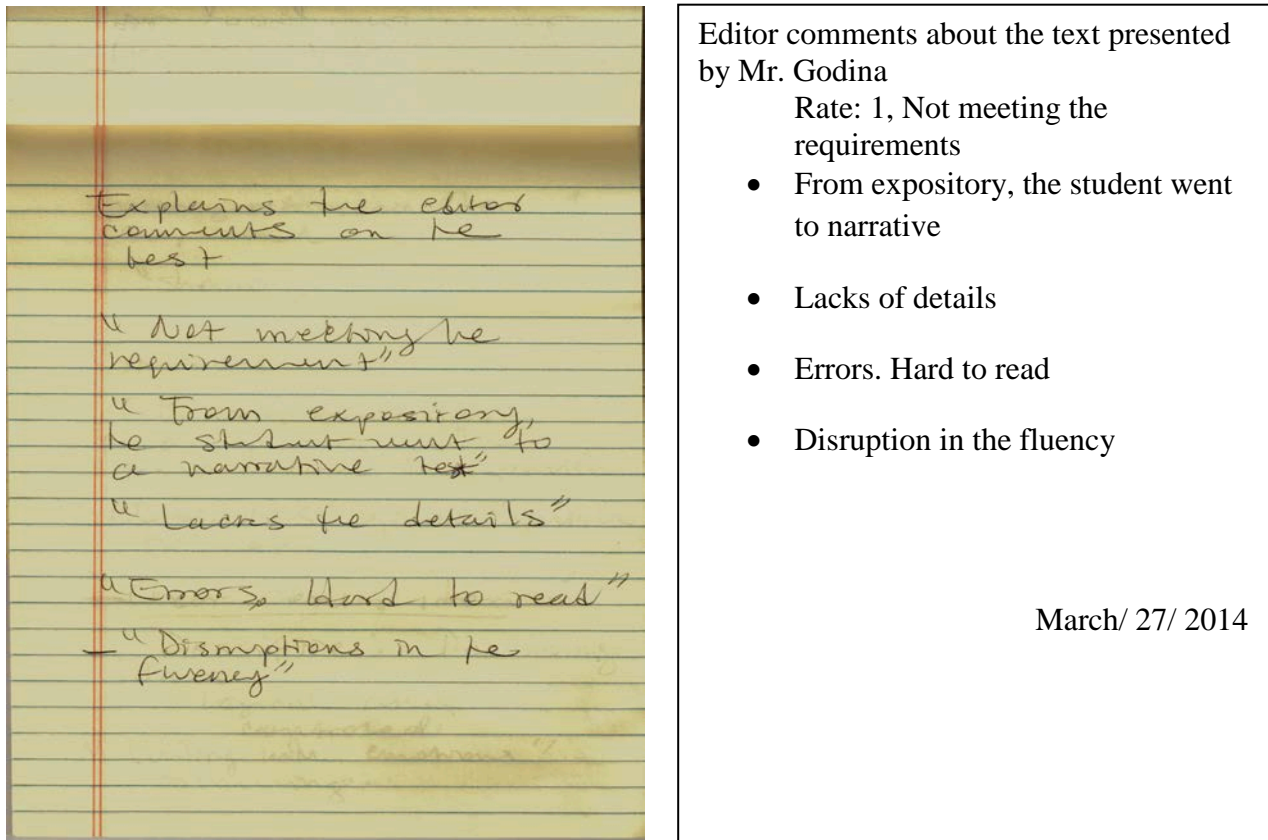 Explains the editor
comments on he
test
" Not meeting he
requirement"
" From expository,
he student went to
a narrative test"
" Lacks the details"
" Errors, Hard to read"
– " Disruptions in he
fluency"
Editor comments about the text presented
by Mr. Godina
Rate: 1, Not meeting the
requirements
• From expository, the student went
to narrative
• Lacks of details
• Errors. Hard to read
• Disruption in the fluency
March/ 27/ 2014